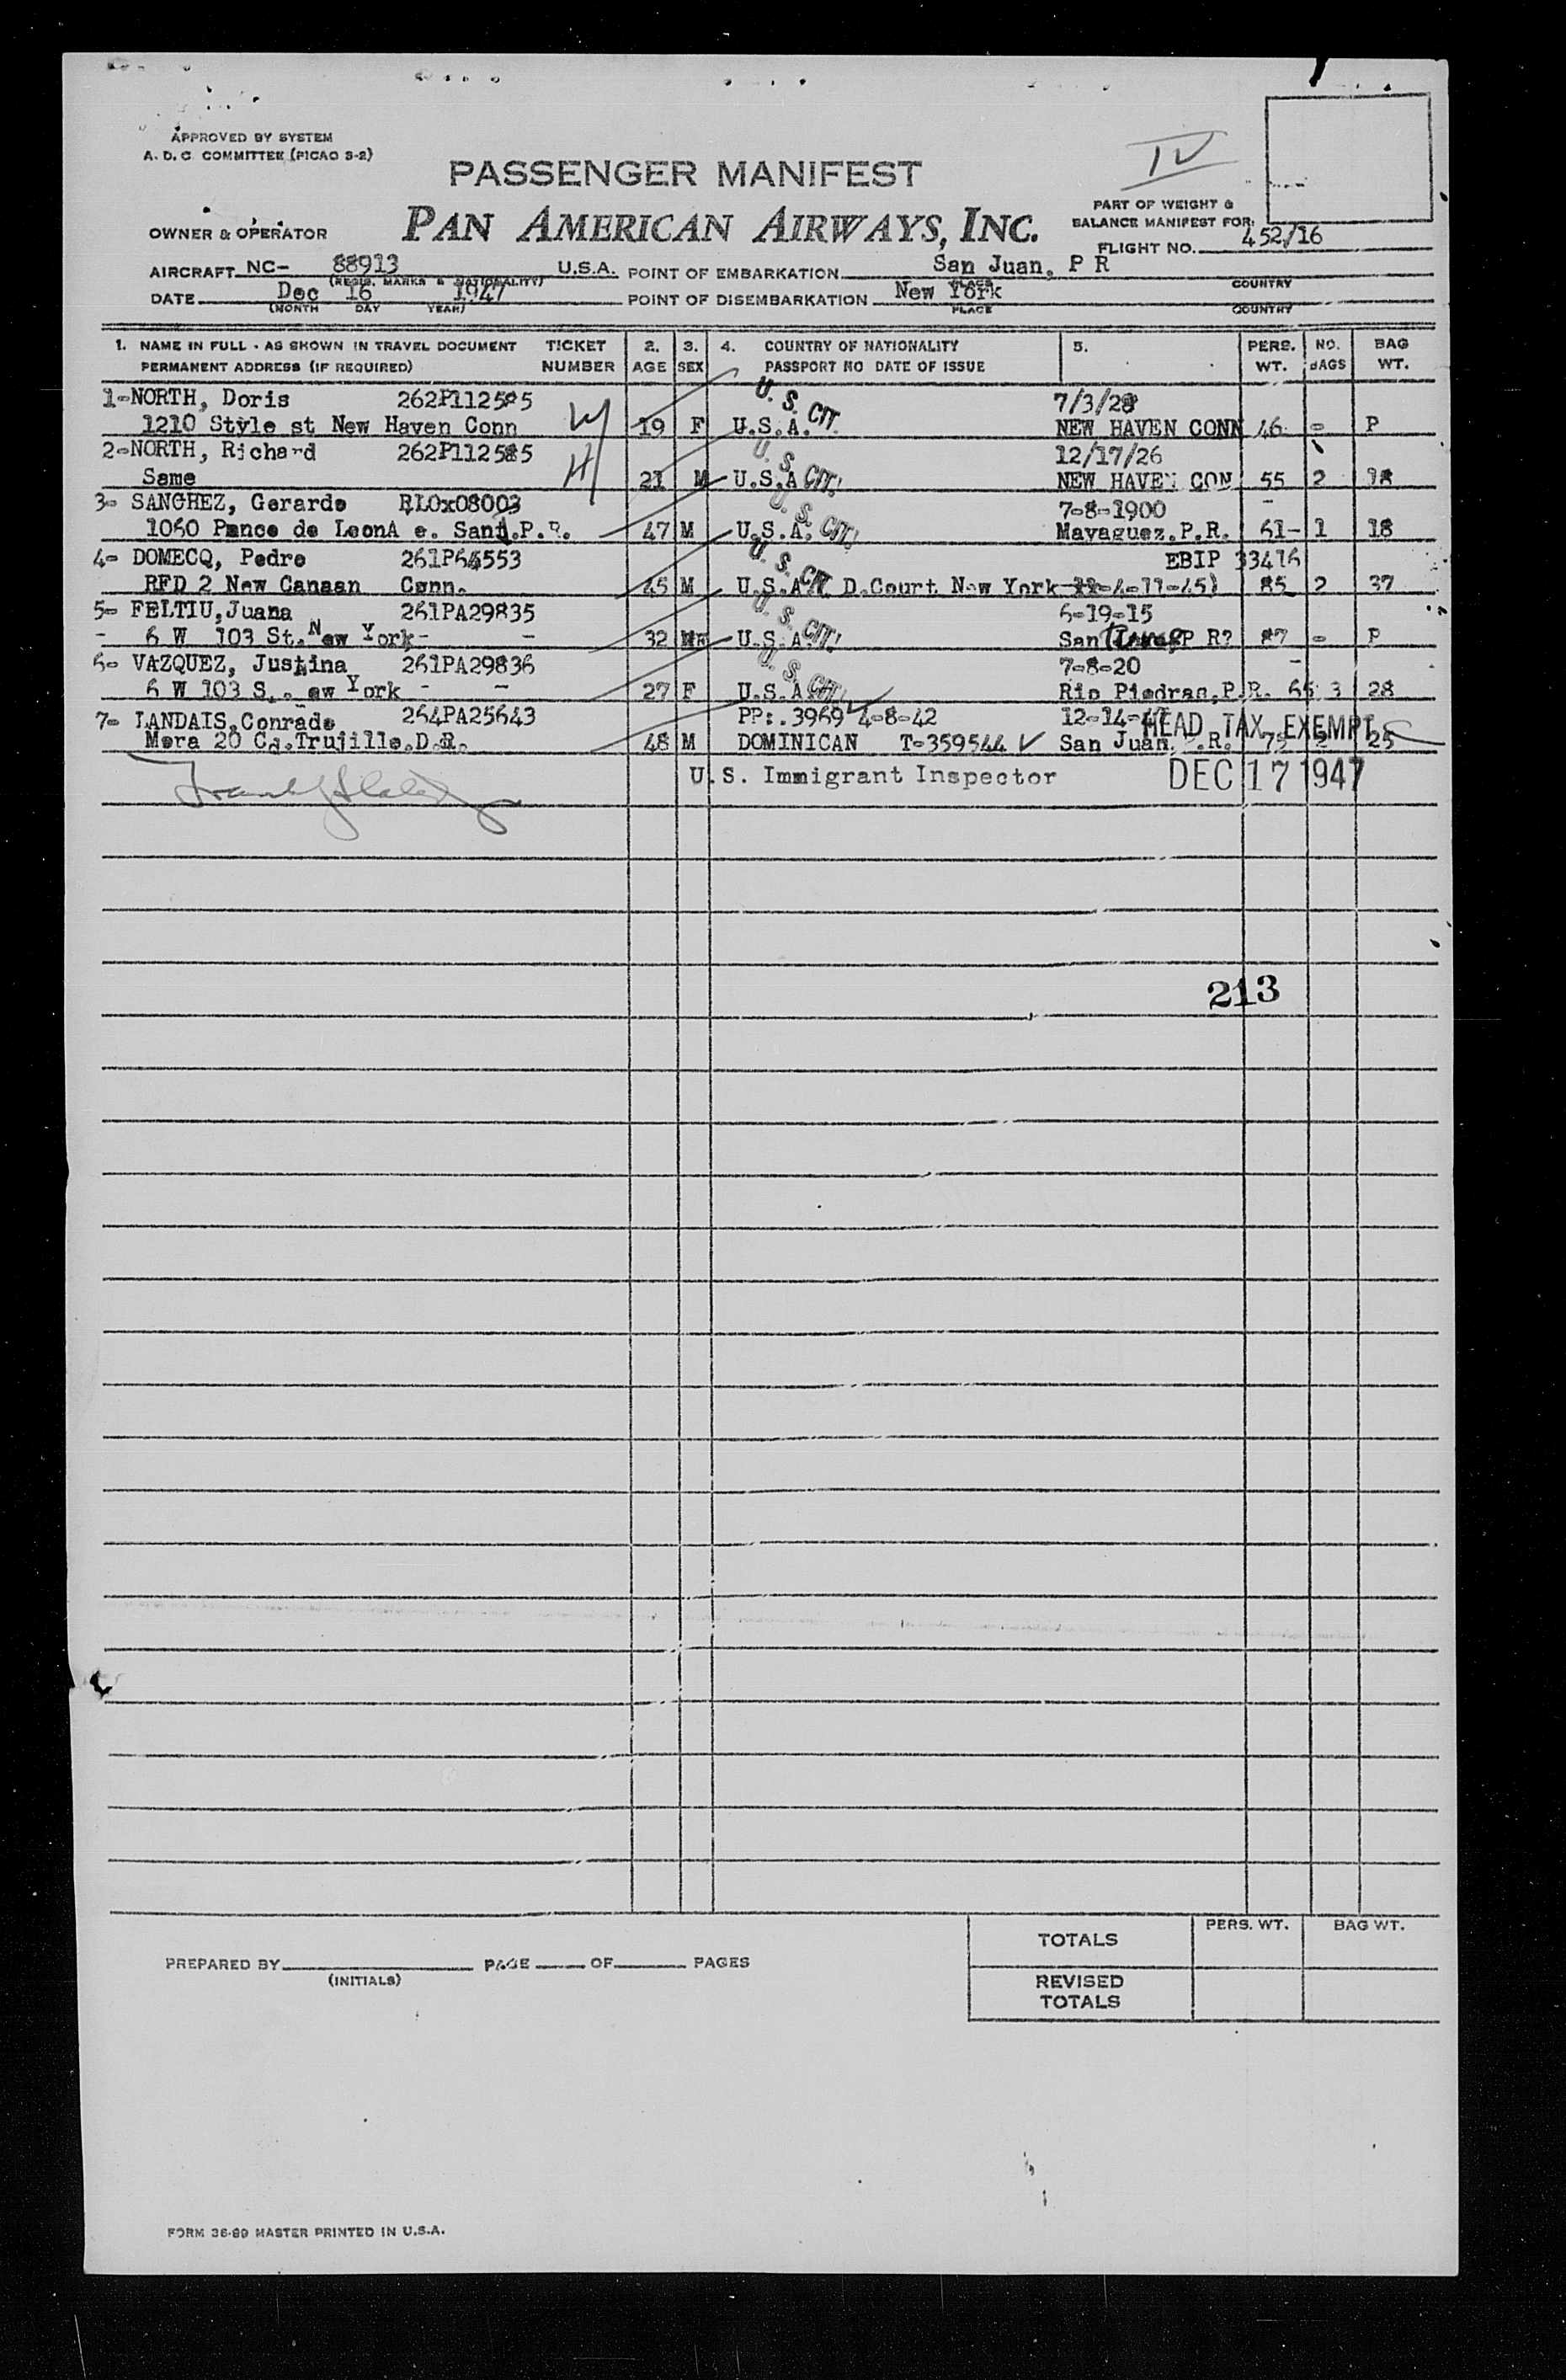 APPROVED BY SYSTEM
A. D. C. COMMITTEE (PICAO S-2)
IV
PASSENGER MANIFEST
PART OF WEIGHT &
BALANCE MANIFEST FOR:
OWNER & OPERATOR
PAN AMERICAN AIRWAYS, INC.
FLIGHT NO. 452/16
AIRCRAFT NC- 88913 U.S.A. POINT OF EMBARKATION San Juan, P R
(REGIS. MARKS & NATIONALITY) PLACE COUNTRY
DATE Dec 16 1947 POINT OF DISEMBARKATION New York
(MONTH DAY YEAR) PLACE COUNTRY
1. NAME IN FULL - AS SHOWN IN TRAVEL DOCUMENT TICKET 2. 3. 4. COUNTRY OF NATIONALITY 5. PERS. NO. BAG
PERMANENT ADDRESS (IF REQUIRED) NUMBER AGE SEX PASSPORT NO DATE OF ISSUE WT. BAGS WT.
1-NORTH, Doris 262P112585 W U. S. CIT. 7/3/28
1210 Style st New Haven Conn 19 F U.S.A. NEW HAVEN CONN 46 - P
2-NORTH, Richard 262P112585 H U. S. CIT! 12/17/26
Same 21 M U.S.A NEW HAVEN CON 55 2 18
3- SANCHEZ, Gerardo RLOx08003 U. S. CIT! 7-8-1900 -
1060 Ponce de LeonA e. SanJ.P.R. 47 M U.S.A. Mayaguez.P.R. 61- 1 18
4- DOMECQ, Pedro 261P64553 U. S. CIT. EBIP 33416
RFD 2 New Canaan Conn. 45 M U.S.A. D.Court New York 4-11-45) 85 2 37
5- FELTIU,Juana 261PA29835 U. S. CIT! 6-19-15
- 6 W 103 St. New York- - 32 U.S.A. San P R? 87 - P
6- VAZQUEZ, Justina 261PA29836 U. S. CIT! 7-8-20 -
6 W 103 S . ew York - - 27 F U.S.A Rio Piedras.P.R. 66 3 28
7- LANDAIS,Conrado 264PA25643 PP:.3969 4-8-42 12-14-47 HEAD TAX EXEMPT
Mera 20 Cd.Trujillo.D.R. 48 M DOMINICAN T-359544 San Juan. .R. 75 2 25
U.S. Immigrant Inspector DEC 17 1947
213
TOTALS PERS. WT. BAG WT.
PREPARED BY PAGE OF PAGES
(INITIALS)
REVISED
TOTALS
FORM 36-99 MASTER PRINTED IN U.S.A.